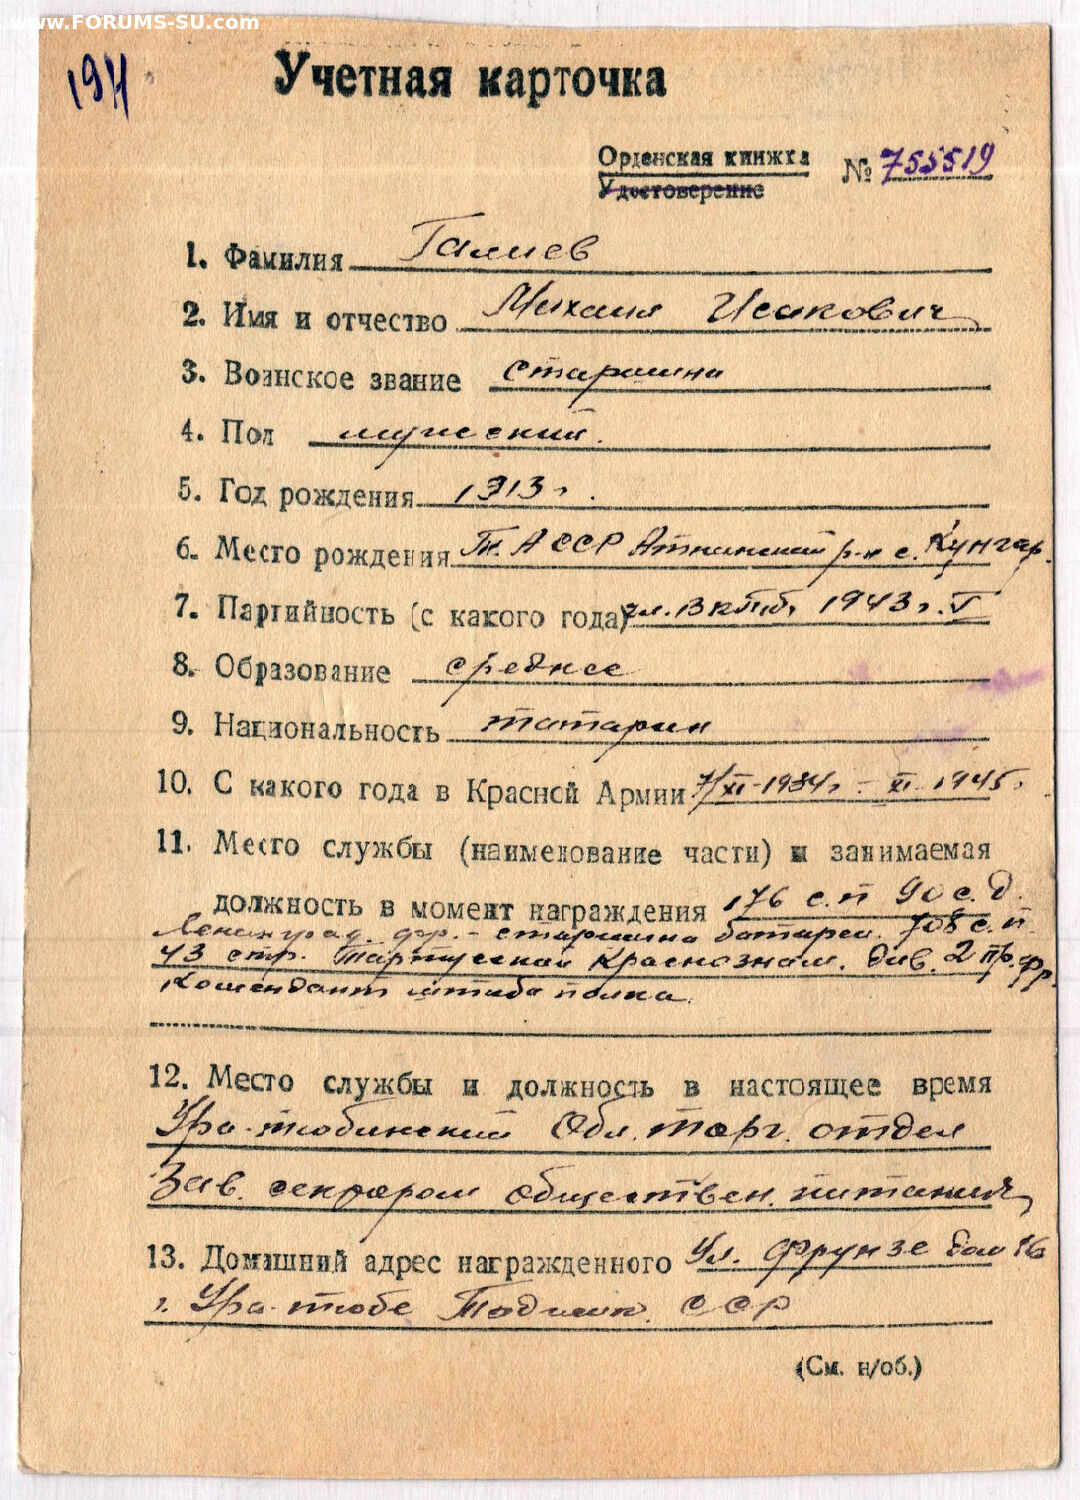 www.FORUMS-SU.com
Учетная карточка
Орденская книжка № 755519
Удостоверение
1. Фамилия Галиев
2. Имя и отчество Михаил Исакович
3. Воинское звание старшина
4. Пол мужской.
5. Год рождения 1913 г.
6. Место рождения Т. АССР Атнинский р-н с. Кунгер.
7. Партийность (с какого года) чл. ВКПб, 1943 г. V
8. Образование среднее
9. Национальность татарин
10. С какого года в Красной Армии 7/XI-1934 г. - XI 1945 г.
11. Место службы (наименование части) и занимаемая
должность в момент награждения 176 с.п 90 с.д.
Ленинград. фр. - старшина батареи. 708 с.п.
43 стр. Тартусской Краснознам. див. 2 пр. фр.
Комендант штаба полка.
12. Место службы и должность в настоящее время
Ура-тюбинский Обл. торг. отдел
Зав. сектором обществен. питания,
13. Домашний адрес награжденного Ул. Фрунзе дом 16
г. Ура-тюбе Таджик. ССР
(См. н/об.)